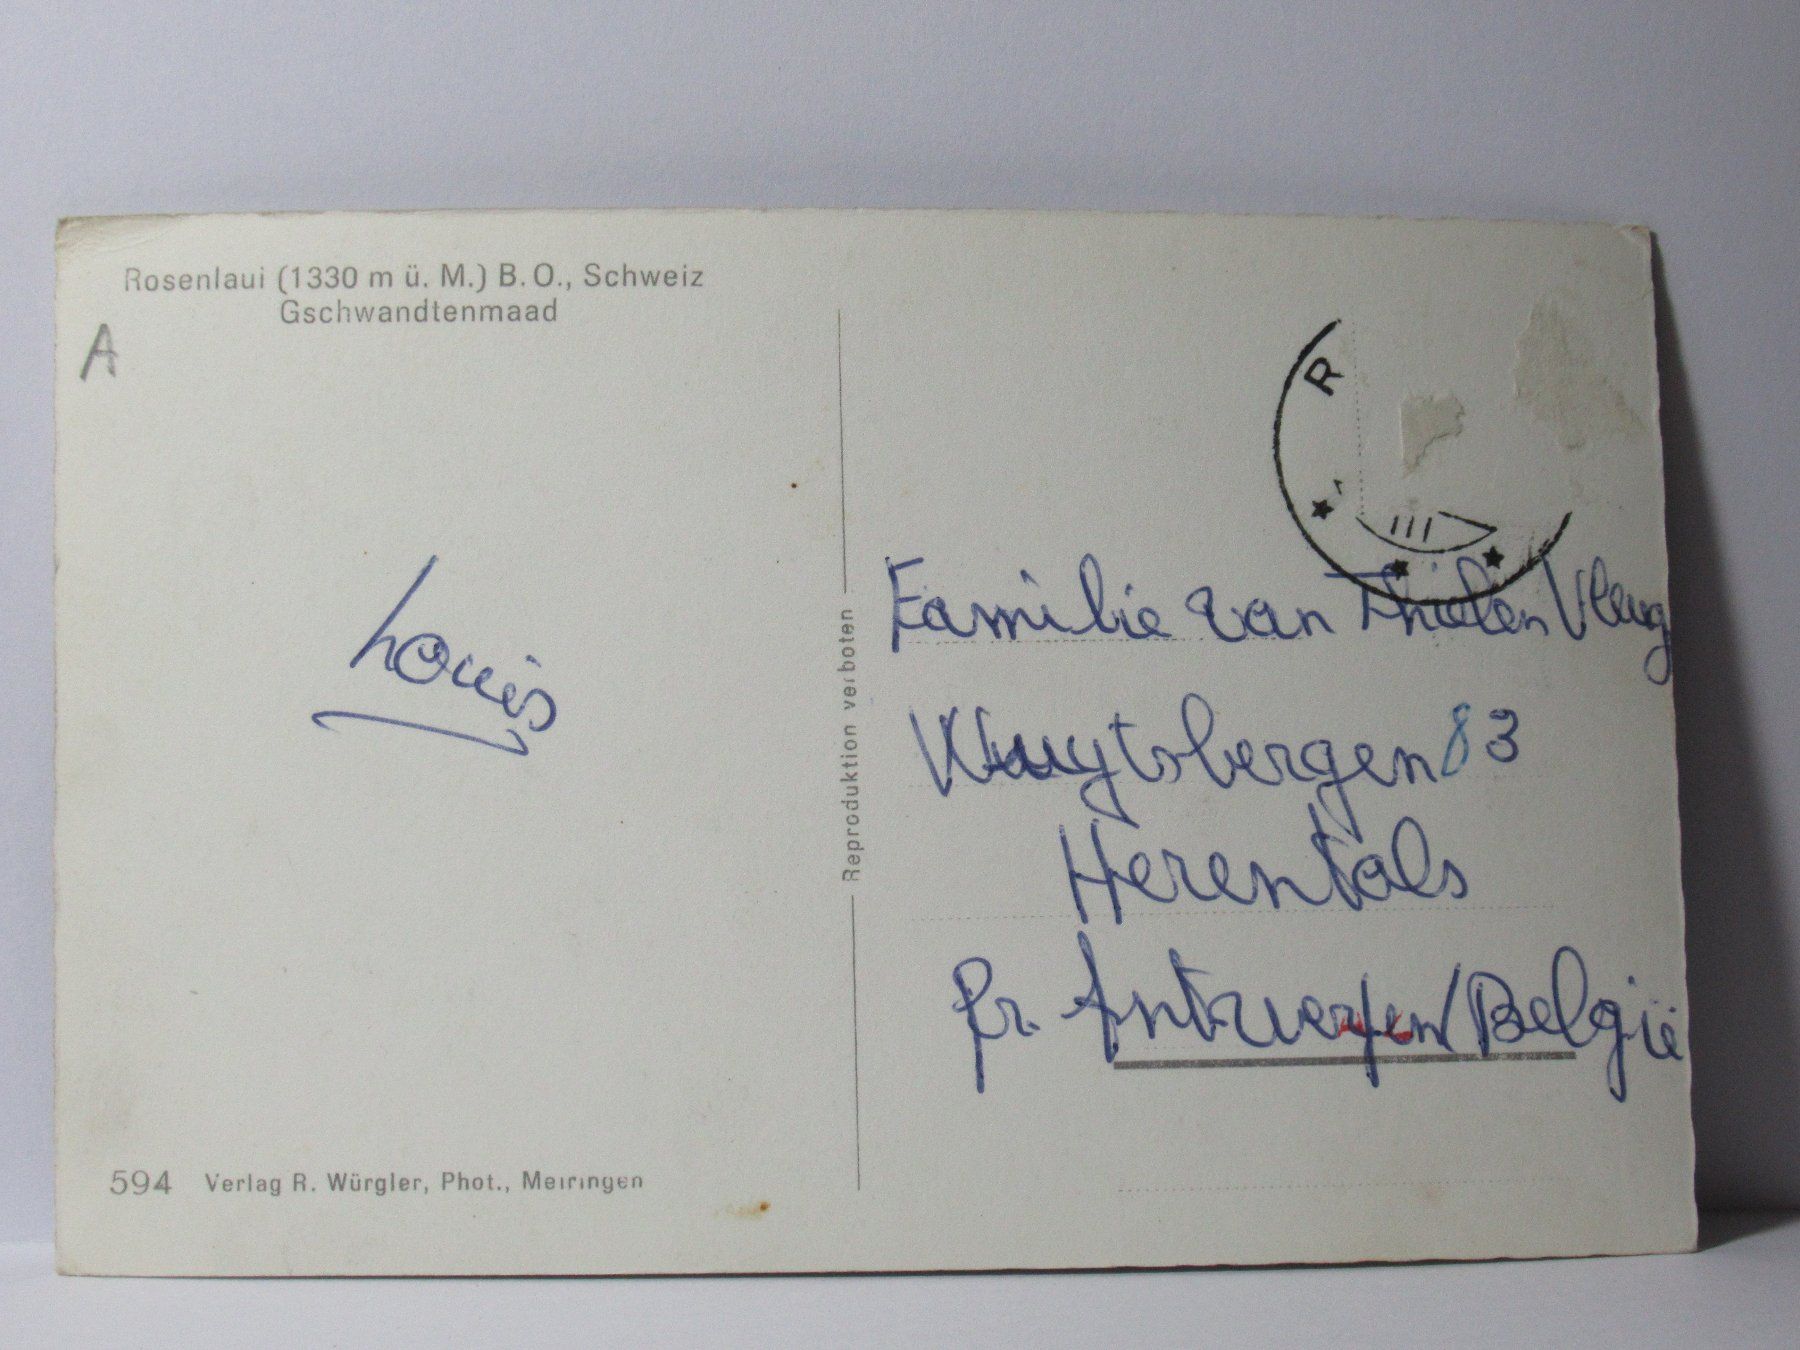 Rosenlaui (1330 m ü. M.) B. O., Schweiz
Gschwandtenmaad
A
Louis
594 Verlag R. Würgler, Phot., Meiringen
Reproduktion verboten
R
Familie van Thielen Vleug
Wuytsbergen 83
Herentals
Pr. Antwerpen/België